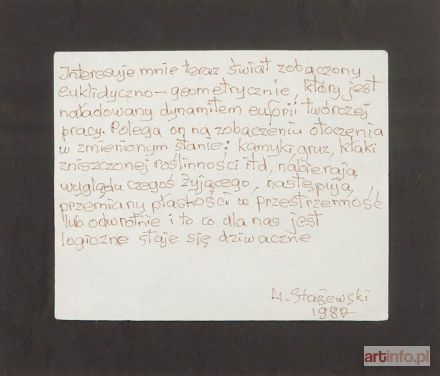 Interesuje mnie teraz świat zobaczony
euklidyczno-geometrycznie, który jest
naładowany dynamitem euforii twórczej
pracy. Polega on na zobaczeniu otoczenia
w zmienionym stanie; kamyki, gruz, kłaki
zniszczonej roślinności itd, nabierają
wyglądu czegoś żyjącego, następują
przemiany płaskości w przestrzenność
lub odwrotnie i to co dla nas jest
logiczne staje się dziwaczne
H. Stażewski
1987
artinfo.pl